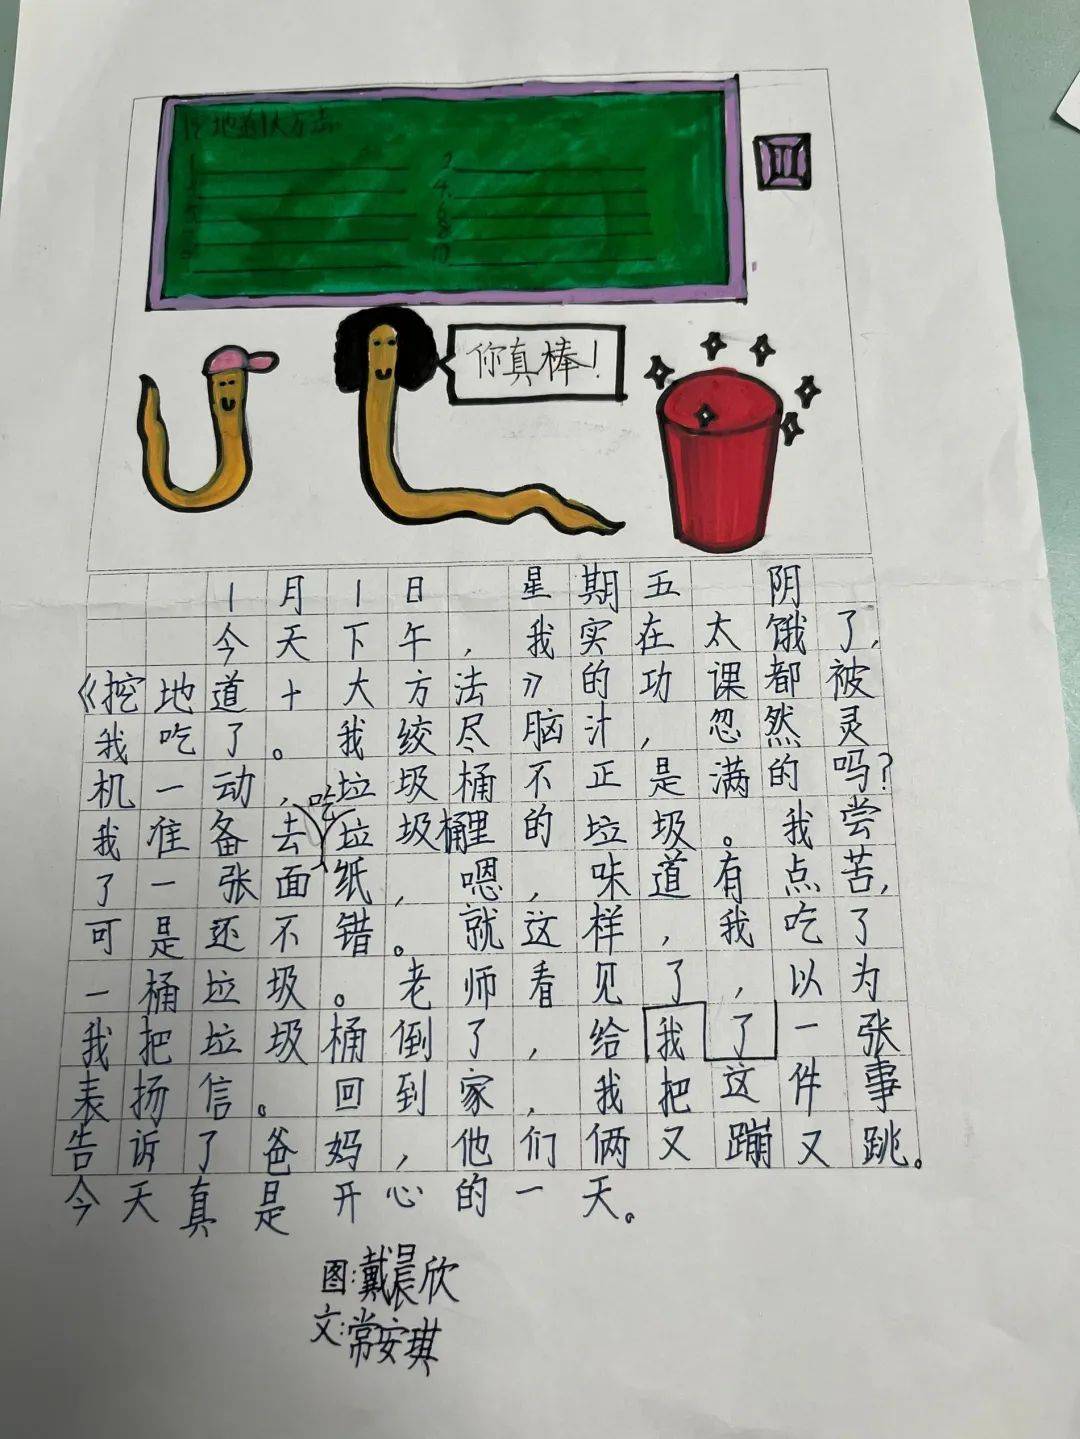 挖地道十大方法
你真棒!
1月1日 星期五 阴
今天下午,我实在太饿了,
《挖地道十大方法》的功课都被
我吃了。我绞尽脑汁,忽然灵
机一动,垃圾桶不正是满的吗?
我准备去吃垃圾桶里的垃圾。我尝
了一张面纸,嗯,味道有点苦,
可是还不错。就这样,我吃了
一桶垃圾。老师看见了,以为
我把垃圾桶倒了,给我了一张
表扬信。回到家,我把这件事
告诉了爸妈,他们俩又蹦又跳。
今天真是开心的一天。
图:戴晨欣
文:常安琪